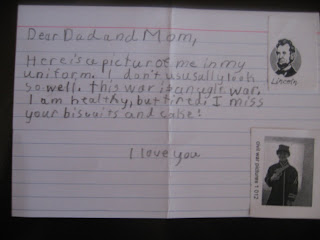 Dear Dad and Mom,
Here is a picture of me in my
uniform. I don't ususally look
so well. this war is an ugle war.
I am healthy, but tired. I miss
your biscuits and cake!
I love you
Lincoln
civil war pictures 1 012